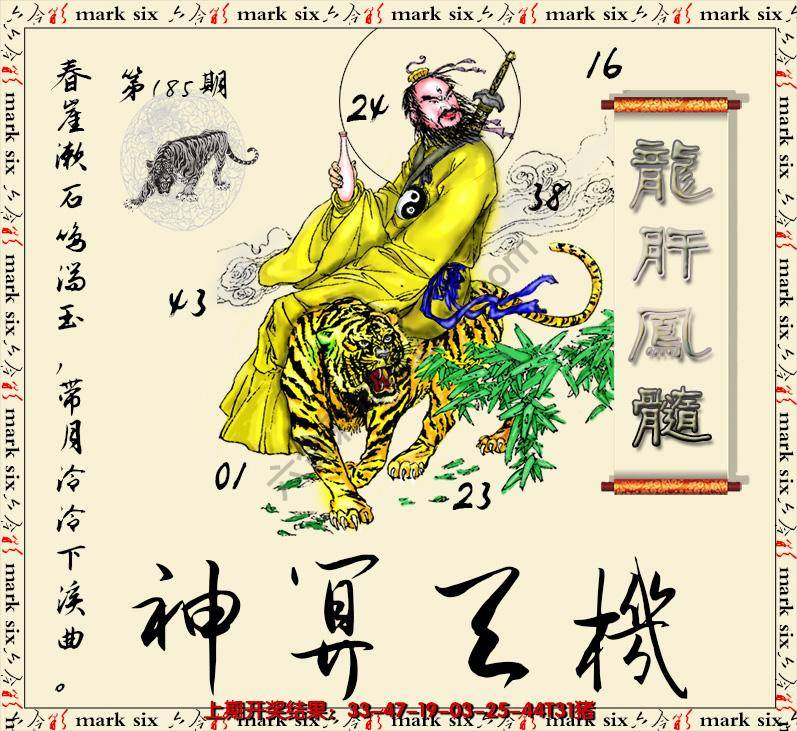 mark six 六合彩 mark six 六合彩 mark six 六合彩 mark six 六合彩 mark six
第185期
春崖漱石鸣湍玉，带月泠泠下溪曲。
16
24
38
43
01
23
龍肝鳳髓
神算天機
上期开奖结果：33-47-19-03-25-44T31猪
mark six 六合彩 mark six 六合彩 mark six 六合彩 mark six 六合彩 mark six